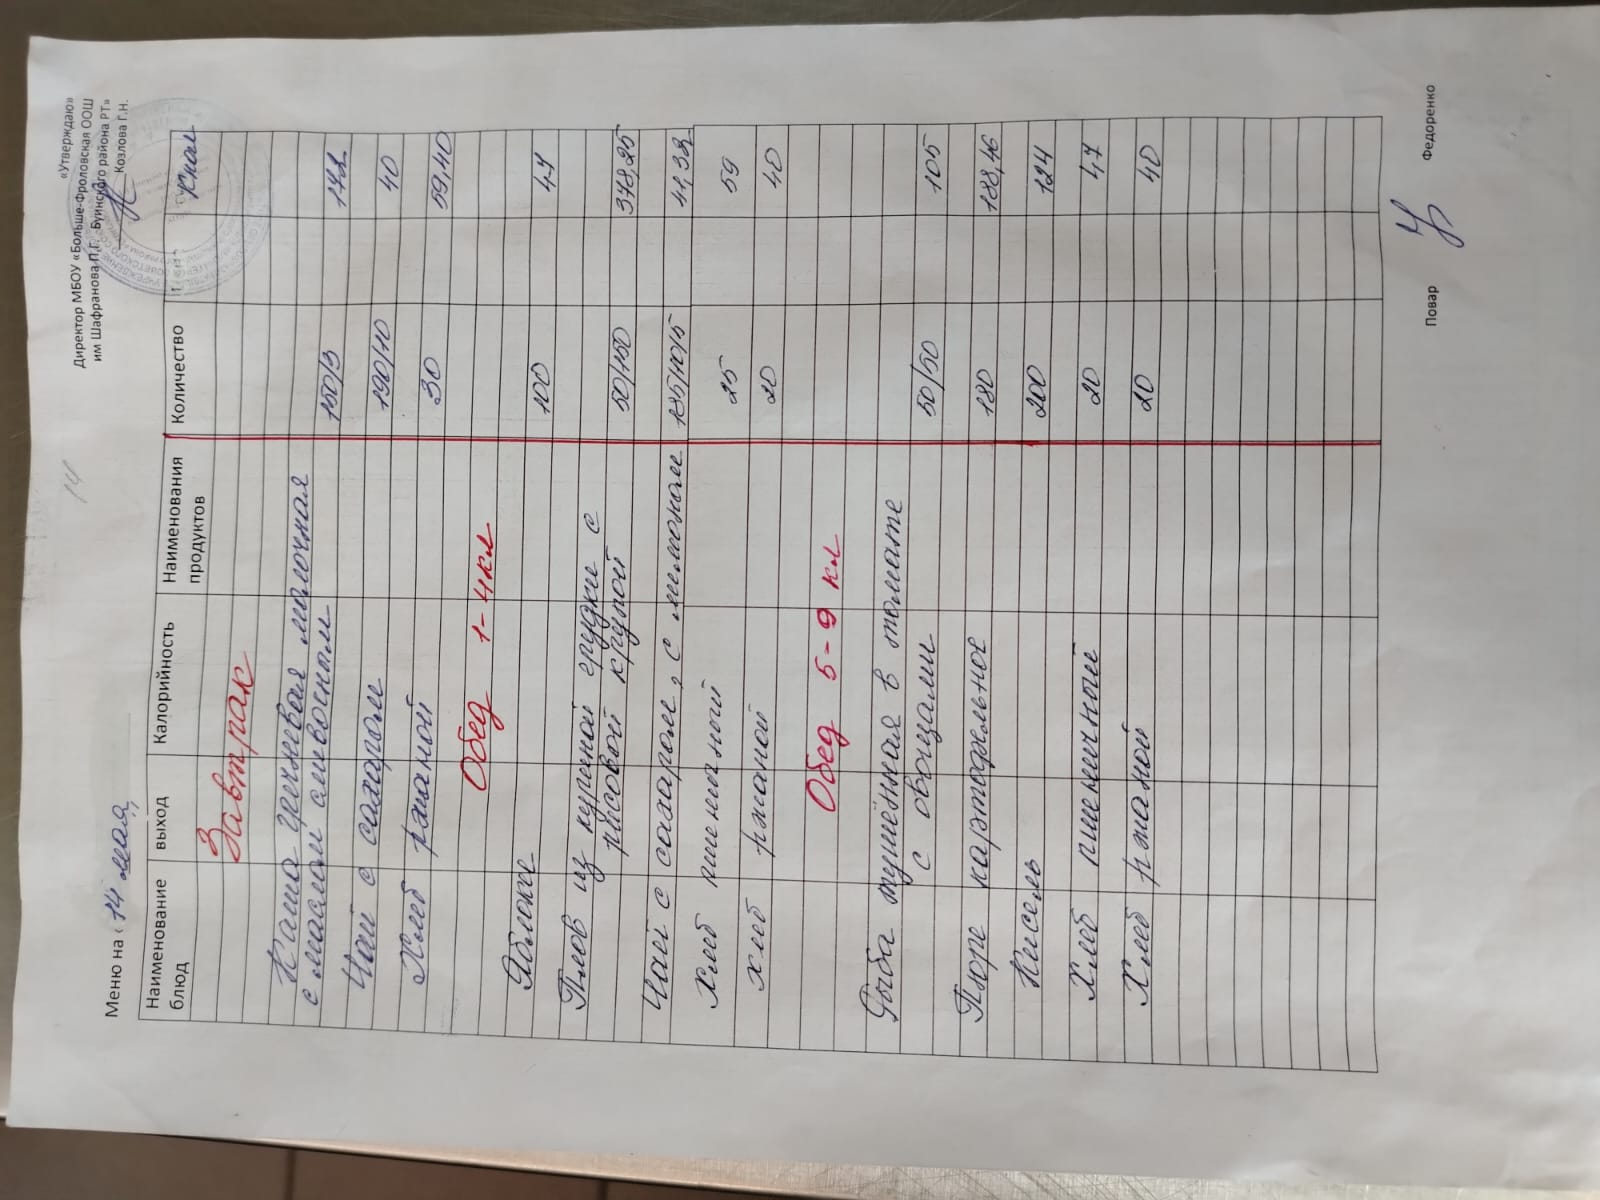 «Утверждаю»
Директор МБОУ «Больше-Фроловская ООШ
им Шафранова П.Г. Буинского района РТ»
Козлова Г.Н.
14
Меню на «14 мая»
Наименование блюд выход Калорийность Наименования продуктов Количество Ккал
Завтрак
Каша гречневая молочная
с маслом сливочным 150/3 172
Чай с сахаром 190/10 40
Хлеб ржаной 30 59,40
Обед 1-4кл
Яблоко 100 47
Плов из куриной грудки с
рисовой крупой 50/150 378,25
Чай с сахаром, с лимоном 185/10/5 41,32
Хлеб пшеничный 25 59
хлеб ржаной 20 40
Обед 5-9 кл
Рыба тушённая в томате
с овощами 50/50 105
Пюре картофельное 180 188,46
Кисель 200 124
Хлеб пшеничный 20 47
Хлеб ржаной 20 40
Повар Федоренко